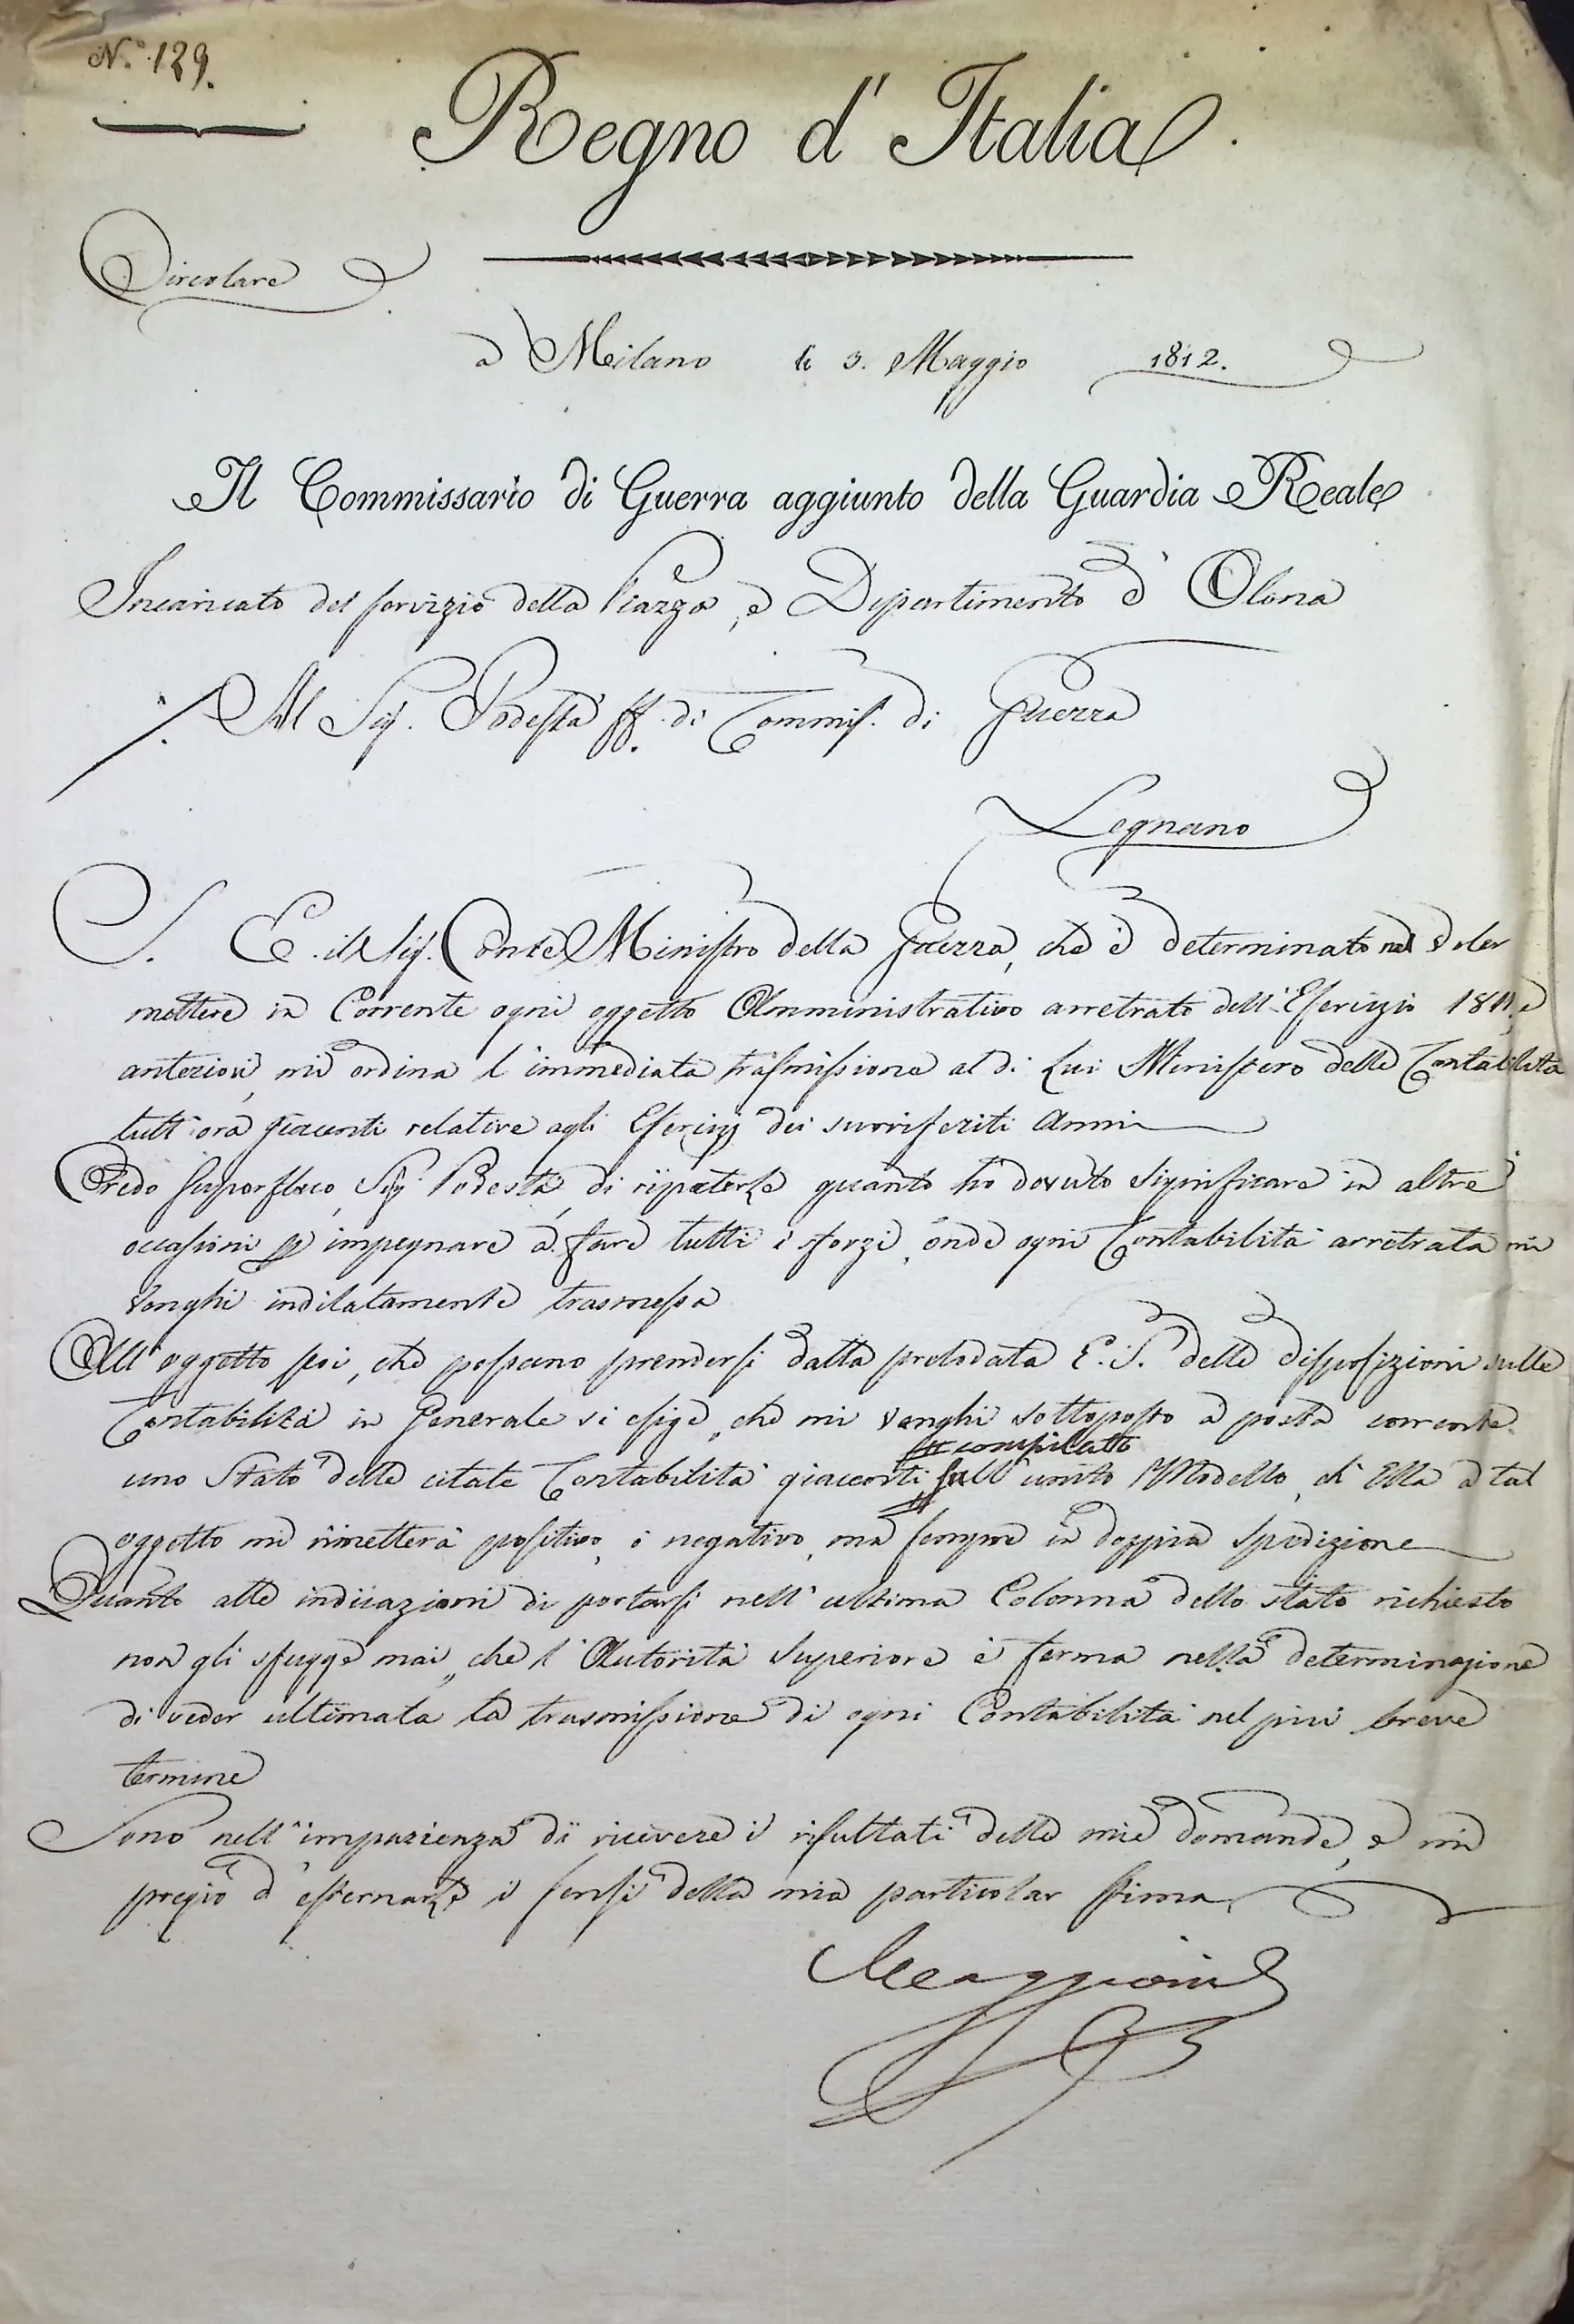 N.° 129.
Regno d'Italia.
Circolare
a Milano li 3. Maggio 1812.
Il Commissario di Guerra aggiunto della Guardia Reale
Incaricato del servizio della Piazza, e Dipartimento d'Olona
Al Sig. Podestà ff. di Commis. di Guerra
Legnano
S. E. il Sig. Conte Ministro della Guerra, che è determinato nel voler
mettere in Corrente ogni oggetto Amministrativo arretrato dell'Esercizio 1811, e
anteriori, mi ordina l'immediata trasmissione al di Lui Ministero delle Contabilità
tutt'ora giacenti relative agli Esercizj dei suoriferiti Anni
Credo superfluo, Sig. Podestà, di ripeterle quanto hò dovuto significare in altre
occasioni impegnare a fare tutti i sforzi, onde ogni Contabilità arretrata mi
venghi indilatamente trasmessa
All'oggetto poi, che possano prendersi dalla prelodata E. S. delle disposizioni sulle
Contabilità in Generale si esige, che mi venghi sottoposto a posta corrente
uno Stato delle citate Contabilità giacenti, compilato sull'unito Modello, ch'Ella a tal
oggetto mi rimetterà positivo, o negativo, ma sempre in doppia spedizione
Quanto alle indicazioni di portarsi nell'ultima Colonna dello stato richiesto
non gli sfugge mai, che l'Autorità Superiore è ferma nella determinazione
di veder ultimata la trasmissione di ogni Contabilità nel più breve
termine
Sono nell'impazienza di ricevere i risultati delle mie domande, e mi
pregio d'esternarle i sensi della mia particolar stima
Maggioni